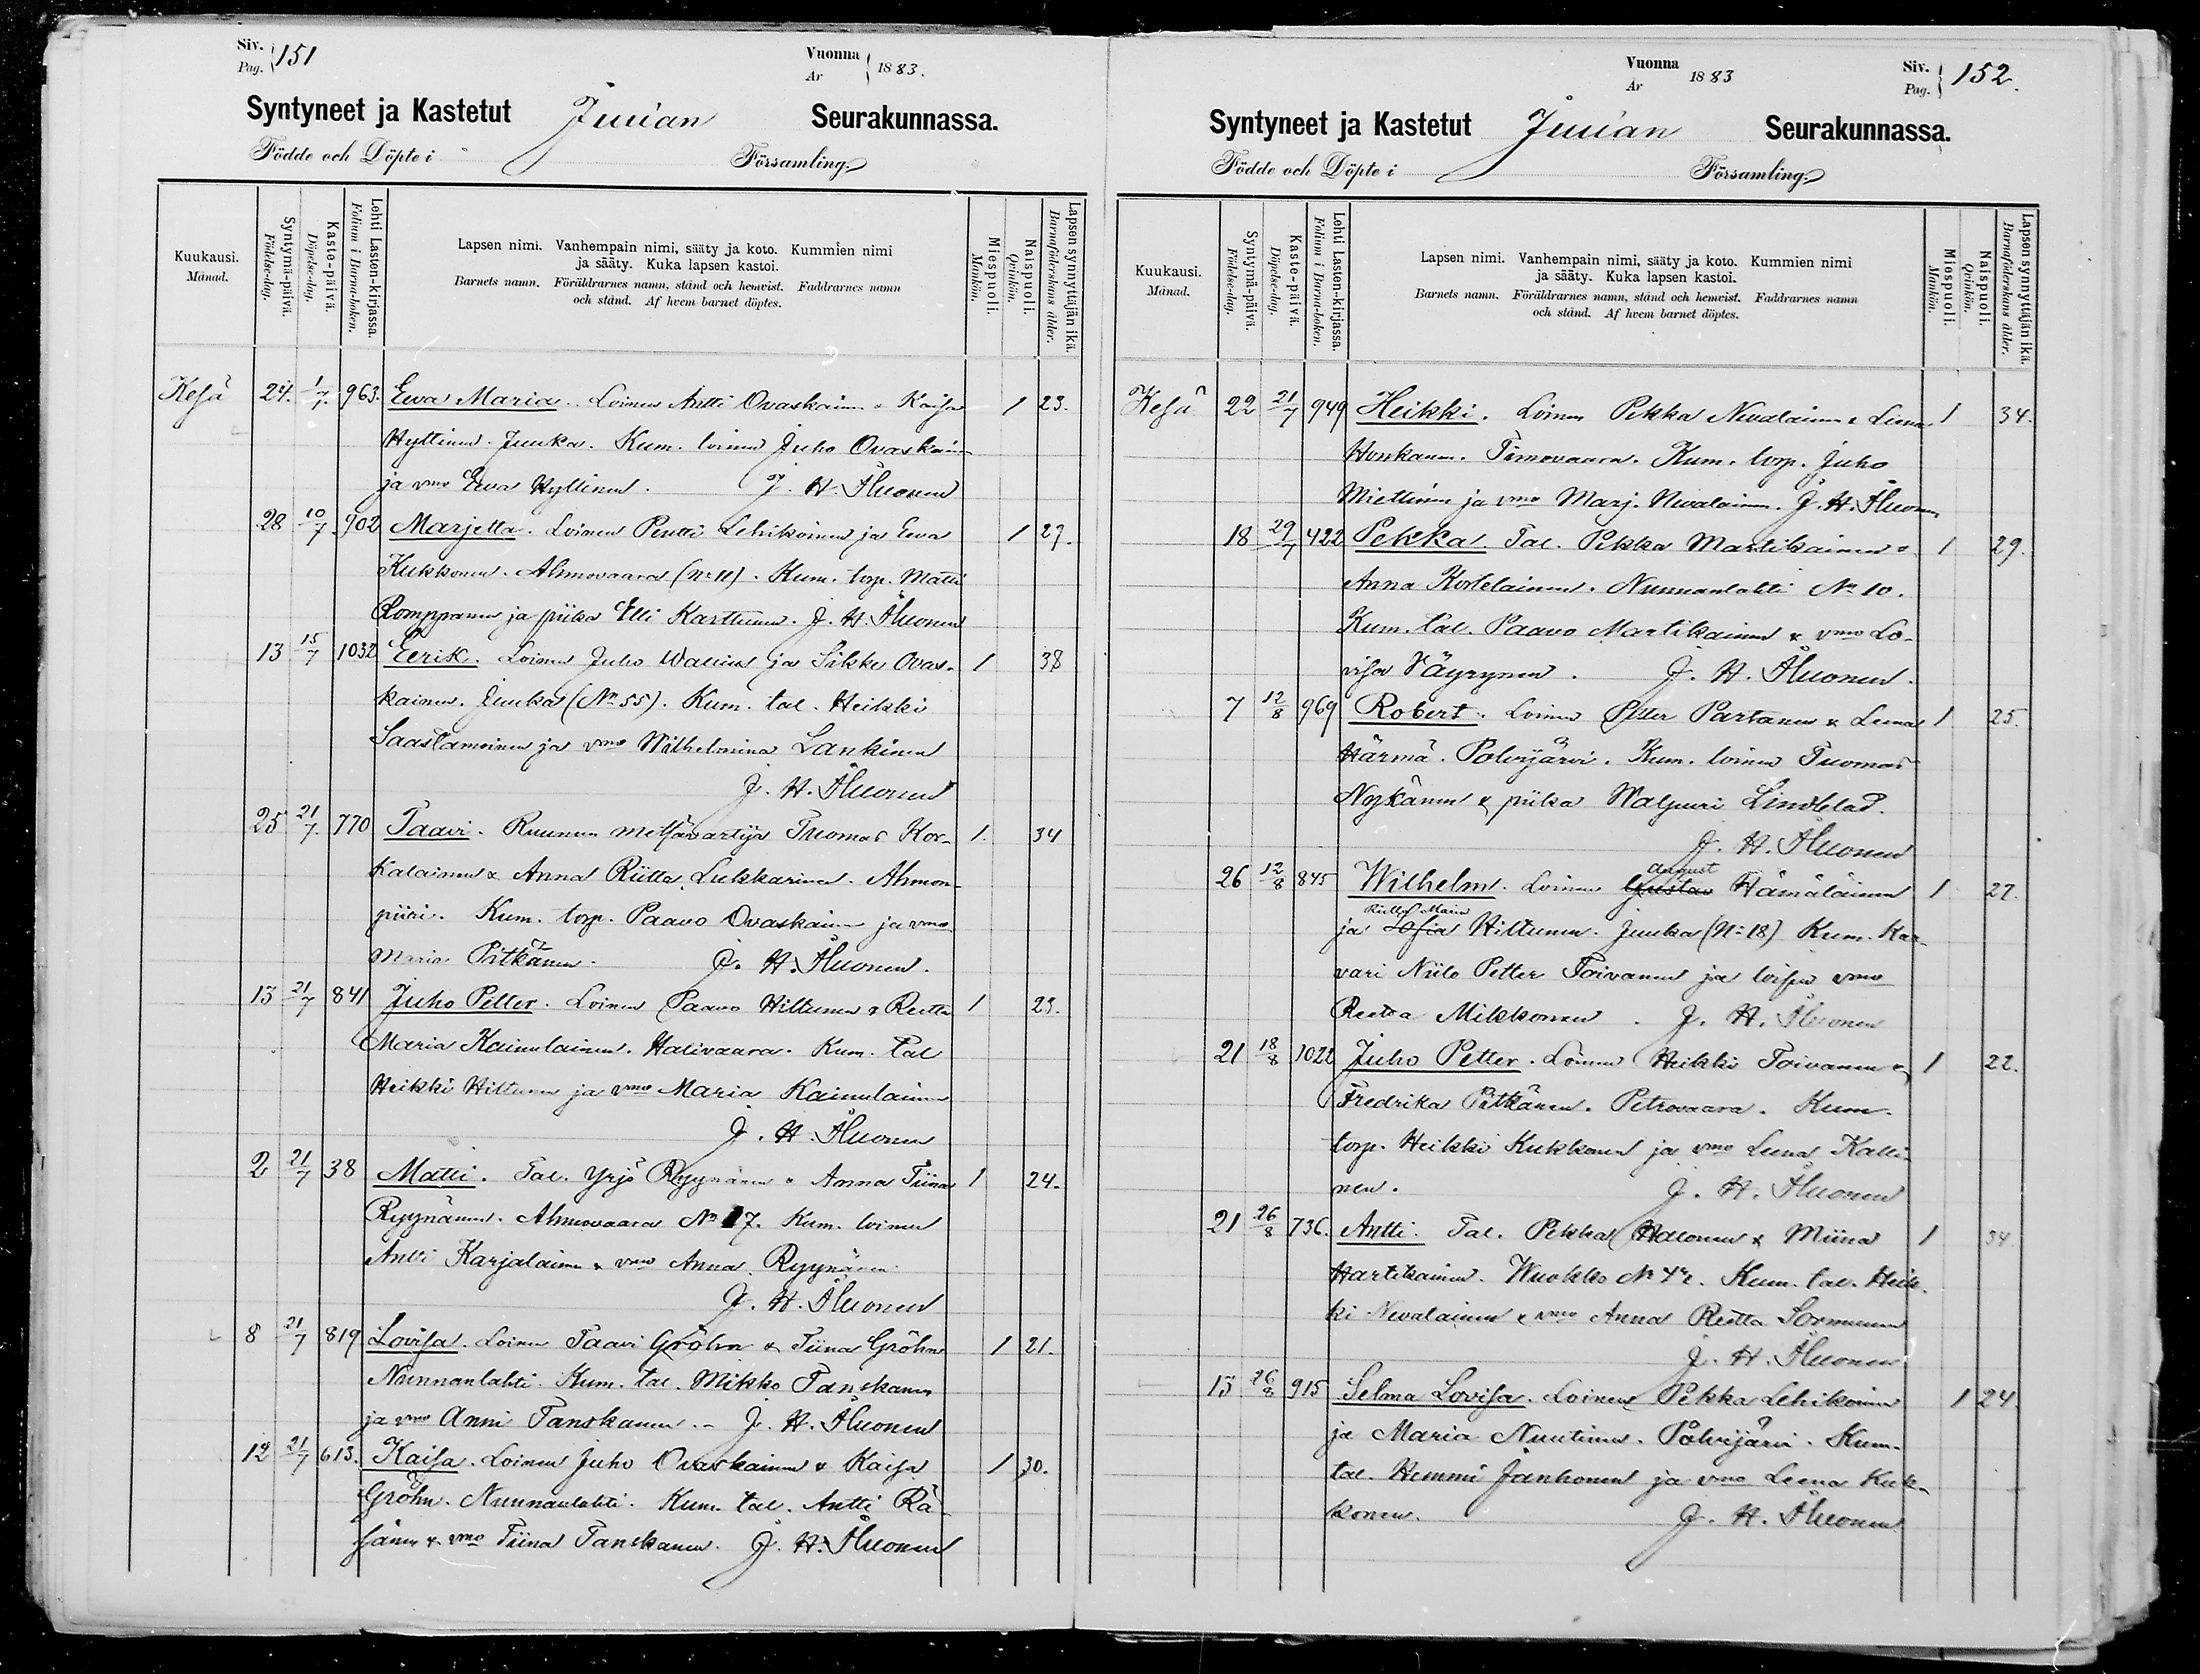 Siv.
Pag. 151
Vuonna
Ar 1883.
Syntyneet ja Kastetut Juuan Seurakunnassa.
Födde och Döpte i Församling.
Kuukausi.
Månad.
Syntymä-päivä.
Födelse-dag.
Kaste-päivä.
Döpelse-dag.
Lehti Lasten-kirjassa.
Folium i Barna-boken.
Lapsen nimi. Vanhempain nimi, sääty ja koto. Kummien nimi
ja sääty. Kuka lapsen kastoi.
Barnets namn. Föräldrarnes namn, stånd och hemvist. Faddrarnes namn
och stånd. Af hvem barnet döptes.
Miespuoli.
Mankön.
Naispuoli.
Qvinkön.
Lapsen synnyttäjän ikä.
Barnaföderskans ålder.
Kesä 24. 1/7. 963. Eewa Maria. Loinen Antti Ovaskainen & Kaisa 1 23.
Hyttinen. Juuka. Kum. loinen Juho Ovaskainen
ja vmo Eewa Hyttinen. J. H. Äluonen
28 10/7 902 Marjetta. Loinen Pentti Lehikoinen ja Eewa 1 27.
Kukkonen. Ahmovaara (№ 11). Kum. torp. Matti
Romppanen ja piika Elli Karttunen. J. H. Äluonen
13 15/7 1032 Eerik. Loinen Juho Wallius ja Sikke Ovas- 1 38
kainen. Juuka (№ 55). Kum. tal. Heikki
Saastamoinen ja vmo Wilhelmina Lankinen
J. H. Äluonen
25 21/7. 770 Taavi. Ruunun metsävartija Tuomas Kor- 1. 34
kalainen & Anna Riitta Lukkarinen. Ahmon-
piiri. Kum. torp. Paavo Ovaskainen ja vmo
Maria Pitkänen. J. H. Äluonen.
13 21/7 841 Juho Petter. Loinen Paavo Hiltunen & Reetta 1 23.
Maria Kainulainen. Halivaara. Kum. tal
Heikki Hiltunen ja vmo Maria Kainulainen
J. H. Äluonen
2 21/7 38 Matti. Tal. Yrjö Ryynänen & Anna Tiina 1 24.
Ryynänen. Ahmovaara № 7. Kum. loinen
Antti Karjalainen & vmo Anna Ryynänen
J. H. Äluonen
8 21/7 819 Lovisa. Loinen Taavi Gröhn & Tiina Gröhn 1 21.
Nunnanlahti. Kum. tal. Mikko Tanskanen
ja vmo Anni Tanskanen. J. H. Äluonen
12 21/7 613. Kaisa. Loinen Juho Ovaskainen & Kaisa 1 30.
Gröhn. Nunnanlahti. Kum. tal. Antti Rä-
sänen & vmo Tiina Tanskanen. J. H. Äluonen
Vuonna
Ar 1883
Siv.
Pag. 152.
Syntyneet ja Kastetut Juuan Seurakunnassa.
Födde och Döpte i Församling.
Kuukausi.
Månad.
Syntymä-päivä.
Födelse-dag.
Kaste-päivä.
Döpelse-dag.
Lehti Lasten-kirjassa.
Folium i Barna-boken.
Lapsen nimi. Vanhempain nimi, sääty ja koto. Kummien nimi
ja sääty. Kuka lapsen kastoi.
Barnets namn. Föräldrarnes namn, stånd och hemvist. Faddrarnes namn
och stånd. Af hvem barnet döptes.
Miespuoli.
Mankön.
Naispuoli.
Qvinkön.
Lapsen synnyttäjän ikä.
Barnaföderskans ålder.
Kesä 22 21/7 949 Heikki. Loinen Pekka Nevalainen & Leena 1 34.
Honkanen. Timovaara. Kum. torp. Juho
Miettinen ja vmo Marj. Nevalainen. J. H. Äluonen
18 29/7 422 Pekka. Tal. Pekka Martikainen & 1 29.
Anna Kortelainen. Nunnanlahti № 10.
Kum. tal. Paavo Martikainen & vmo Lo-
visa Väyrynen. J. H. Äluonen.
7 12/8 969 Robert. Loinen Petter Partanen & Leena 1 25.
Härmä. Polvijärvi. Kum. loinen Tuomas
Nozkänen & piika Walpuri Lindblad.
J. H. Äluonen
August
26 12/8 845 Wilhelm. Loinen Gustav Hämäläinen 1 27.
Riitta Maria
ja Sofia Hiltunen. Juuka (№ 18) Kum. Kar-
vari Niilo Petter Toivanen ja loisen vmo
Reetta Mikkonen. J. H. Äluonen
21 18/8 1022 Juho Petter. Loinen Heikki Toivanen & 1 22.
Fredrika Pitkänen. Petrovaara. Kum.
torp. Heikki Kukkonen ja vmo Leena Kalli-
nen. J. H. Äluonen
21 26/8 736. Antti. Tal. Pekka Halonen & Miina 1 34.
Hartikainen. Wuokko № 42. Kum. tal. Heik-
ki Nevalainen & vmo Anna Reetta Sormunen
J. H. Äluonen
13 26/8 915 Selma Lovisa. Loinen Pekka Lehikoinen 1 24
ja Maria Nuutinen. Polvijärvi. Kum.
tal. Hemmi Jänkonen ja vmo Leena Kuk-
konen. J. H. Äluonen